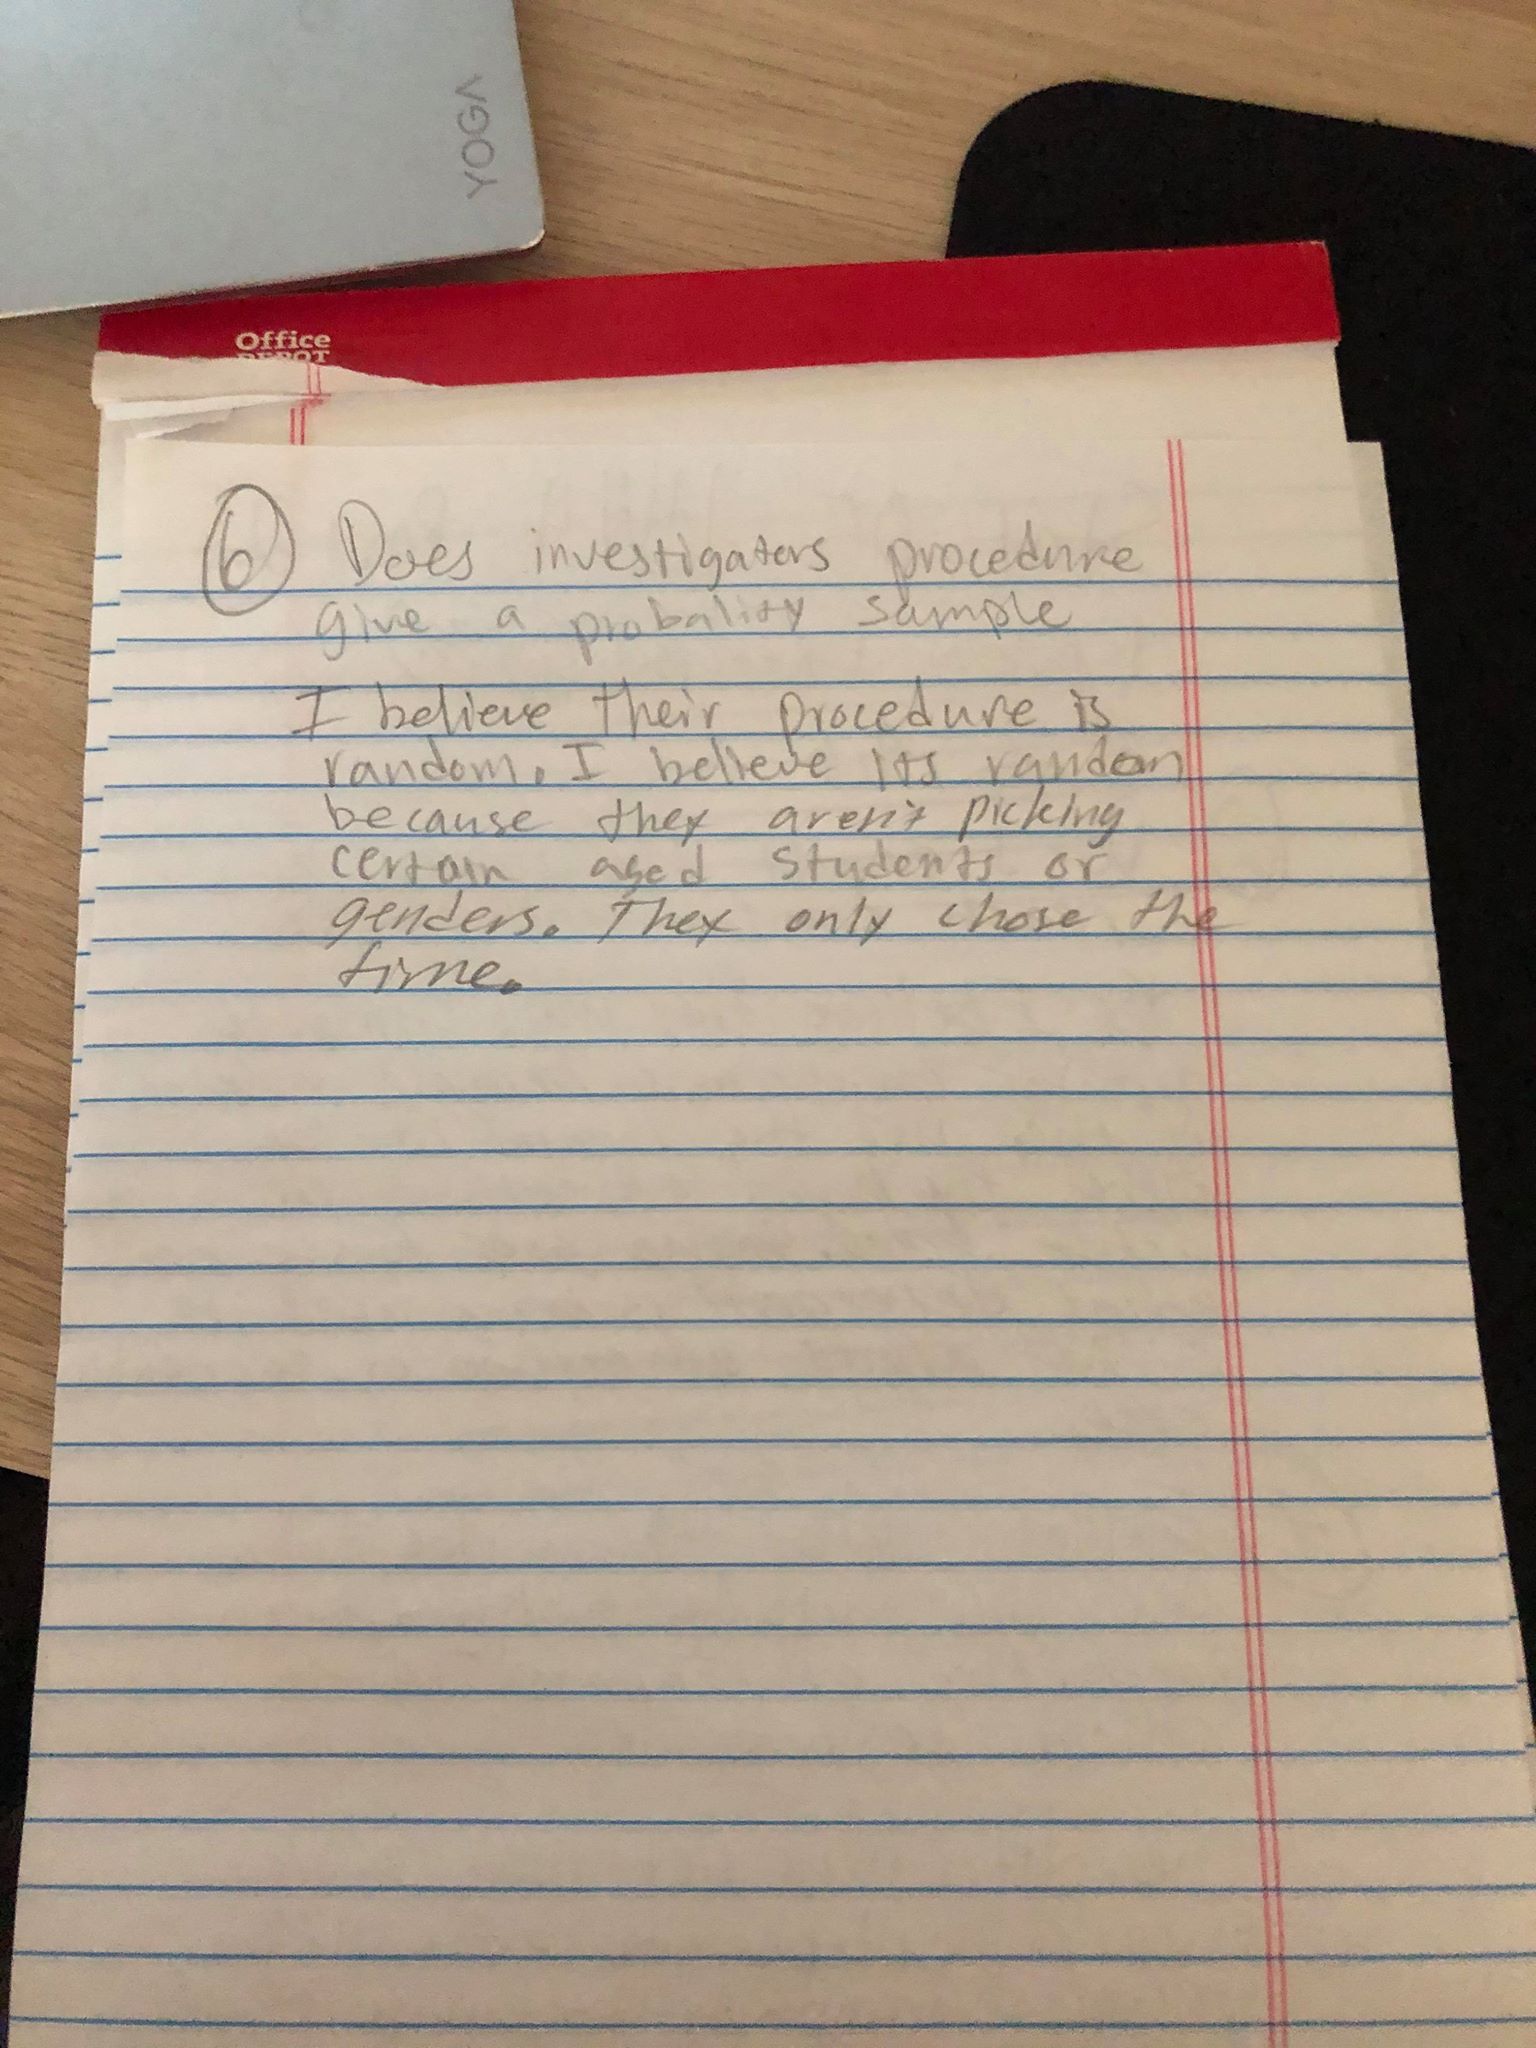 YOGA
Office
DEPOT
6 Does investigators procedure
give a probality sample
I believe their procedure is
random. I believe its random
because they aren't picking
certain aged students or
genders. They only chose the
time.